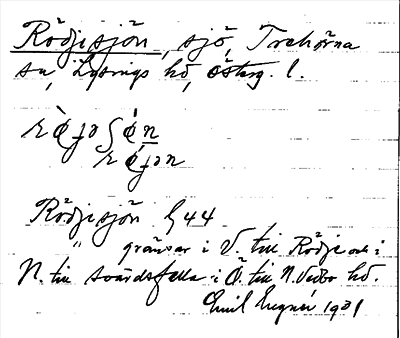 Rödjesjön, sjö, Trehörna
sn, Lysings hd, Österg. l.
Rödjesjön G 44
" gränsar i V. till Rödje och i
N. till Svärdsfälla i Ö. till N. Vedbo hd.
Emil Lugner 1931